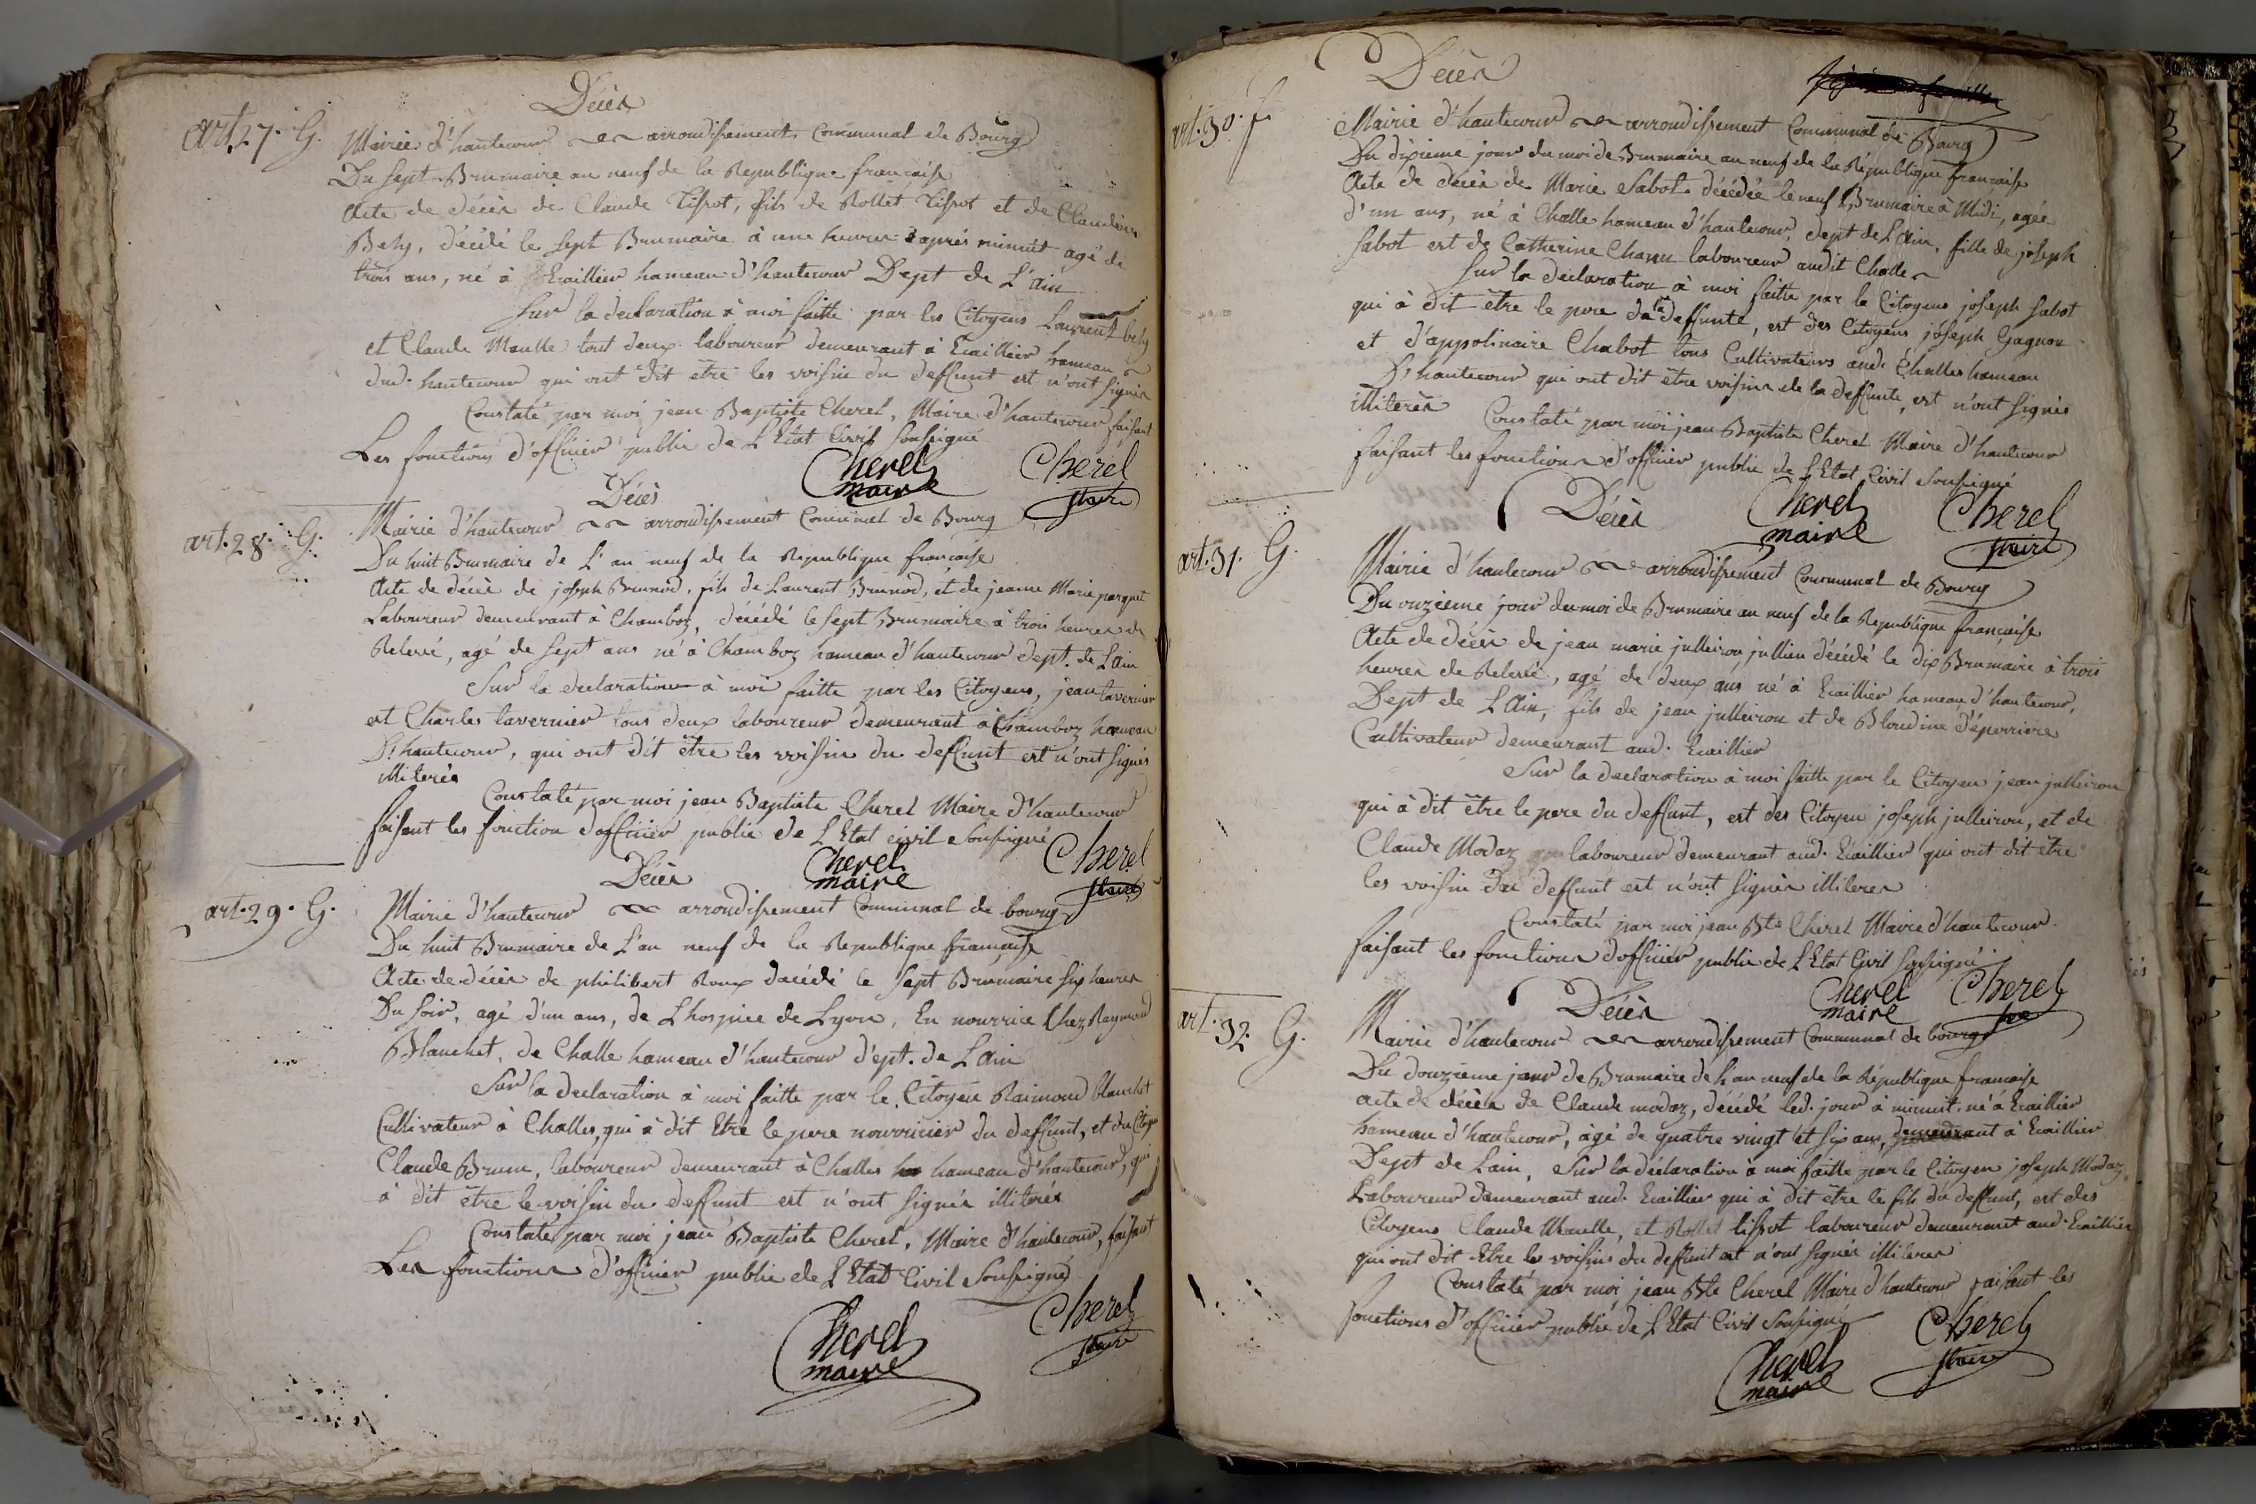 Décès
art. 27. G.
Mairie d'hautecour arrondissement Communal de Bourg
Du sept Brumaire an neuf de la Republique francaise
Acte de décès de Claude Tissot, fils de Rollet Tissot et de Claudine
Bely, décédé le sept Brumaire à une heures d'après minuit agé de
trois ans, né à Ecaillier hameau d'hautecour Dept de L'ain
Sur la declaration à moi faitte par les Citoyens Laurent bely
et Claude Maulle tout deux laboureur demeurant à Ecaillier hameau
dud. hautecour qui ont dit être les voisin du deffunt est n'ont signés
Constaté par moi jean Baptiste Cherel, Maire d'hautecour faisant
Les fonctions d'officier public de L'Etat Civil soussigné
Cherel maire
Cherel Maire
Décès
art. 28. G.
Mairie d'hautecour arrondissement Communal de Bourg
Du huit Brumaire de L'an neuf de la Republique francaise
Acte de décès de joseph Brunod, fils de Laurent Brunod, et de jeanne Marie parquet
Laboureur demeurant à Chamboz, décédé le sept Brumaire à trois heures de
Relevé, agé de sept ans né à Chamboz hameau d'hautecour dept. de L'ain
Sur la declaration à moi faitte par les Citoyens, jean tavernier
et Charles tavernier tous deux laboureur demeurant à Chamboz hameau
D'hautecour, qui ont dit être les voisin du deffunt est n'ont signés
illiterés
Constaté par moi jean Baptiste Cherel Maire d'hautecour
faisant les fonction d'officier public de L'Etat civil soussigné
Cherel maire
Cherel Maire
Décès
art. 29. G.
Mairie d'hautecour arrondissement Communal de bourg
Du huit Brumaire de L'an neuf de la Republique francaise
Acte de décès de philibert Roux décédé le sept Brumaire six heures
Du soir, agé d'un ans, de L'hospice de Lyon, En nourrice Chez Raymond
Blanchet, de Challe hameau d'hautecour d'ept. de L'ain
Sur la declaration à moi faitte par le Citoyen Raimond blanchet
Cultivateur à Challes, qui à dit Etre le pere nourricier du deffunt, et du Citoyen
Claude Brun, laboureur demeurant à Challes hameau d'hautecour, qui
à dit être le voisin du deffunt est n'ont signés illiterés
Constaté par moi jean Baptiste Cherel, Maire d'hautecour, faisant
Les fonctions d'officier public de L'Etat Civil Soussigné
Cherel maire
Cherel Maire
Décès
art. 30. f
Mairie d'hautecour arrondissement Communal de Bourg
Du dixieme jour du moi de Brumaire an neuf de la République francaise
Acte de décès de Marie Sabot décédée le neuf Brumaire à Midi, agée
d'un ans, né à Challe hameau d'hautecour, dept de L'ain, fille de joseph
Sabot est de Catherine Chanu laboureur audit Challe
Sur la declaration à moi faitte par le Citoyens joseph Sabot
qui à dit être le pere de la deffunte, est des Citoyens joseph Gagnon
et d'appolinaire Chabot tous Cultivateurs aud. Challes hameau
D'hautecour qui ont dit être voisins de la deffunte, est n'ont signés
illiterés Constaté par moi jean Baptiste Cherel Maire d'hautecour
faisant les fonctions d'officier public de L'Etat Civil Soussigné
Cherel maire
Cherel Maire
Décès
art. 31. G.
Mairie d'hautecour arrondissement Communal de Bourg
Du onzieme jour du moi de Brumaire an neuf de la Republique francaise
Acte de décès de jean marie julleiron jullien décédé le dix Brumaire à trois
heures de Relevé, agé de deux ans né à Ecaillier hameau d'hautecour,
Dept de L'Ain, fils de jean julleiron et de Bloudine d'éporriere
Cultivateur demeurant aud. Ecaillier
Sur la declaration à moi faitte par le Citoyen jean julleiron
qui à dit être le pere du deffunt, est des Citoyen joseph julleiron, et de
Claude Modaz laboureur demeurant aud. Ecaillier qui ont dit être
les voisin du deffunt est n'ont signés illiteres
Constaté par moi jean Bte Cherel Maire d'hautecour
faisant les fonctions d'officier public de L'Etat Civil Soussigné
Cherel maire
Cherel
Décès
art. 32. G.
Mairie d'hautecour arrondissement Communal de bourg
Du douzieme jour de Brumaire de L'an neuf de la République francaise
acte de décès de Claude modaz, décédé led. jour à minuit né à Ecaillier
hameau d'hautecour, àgé de quatre vingt et six ans, demeurant à Ecaillier
Dept de Lain, Sur la déclaration à moi faitte par le Citoyen joseph Modaz
Laboureur demeurant aud. Ecaillier qui à dit être le fils du deffunt, est des
Citoyens Claude Maulle, et Rollet tissot laboureur demeurant aud. Ecaillier
qui ont dit Etre les voisins du deffunt est n'ont signés illiteres
Constaté par moi jean Bte Cherel Maire d'hautecour faisant les
fonctions d'officier public de L'Etat Civil Soussigné
Cherel maire
Cherel Maire